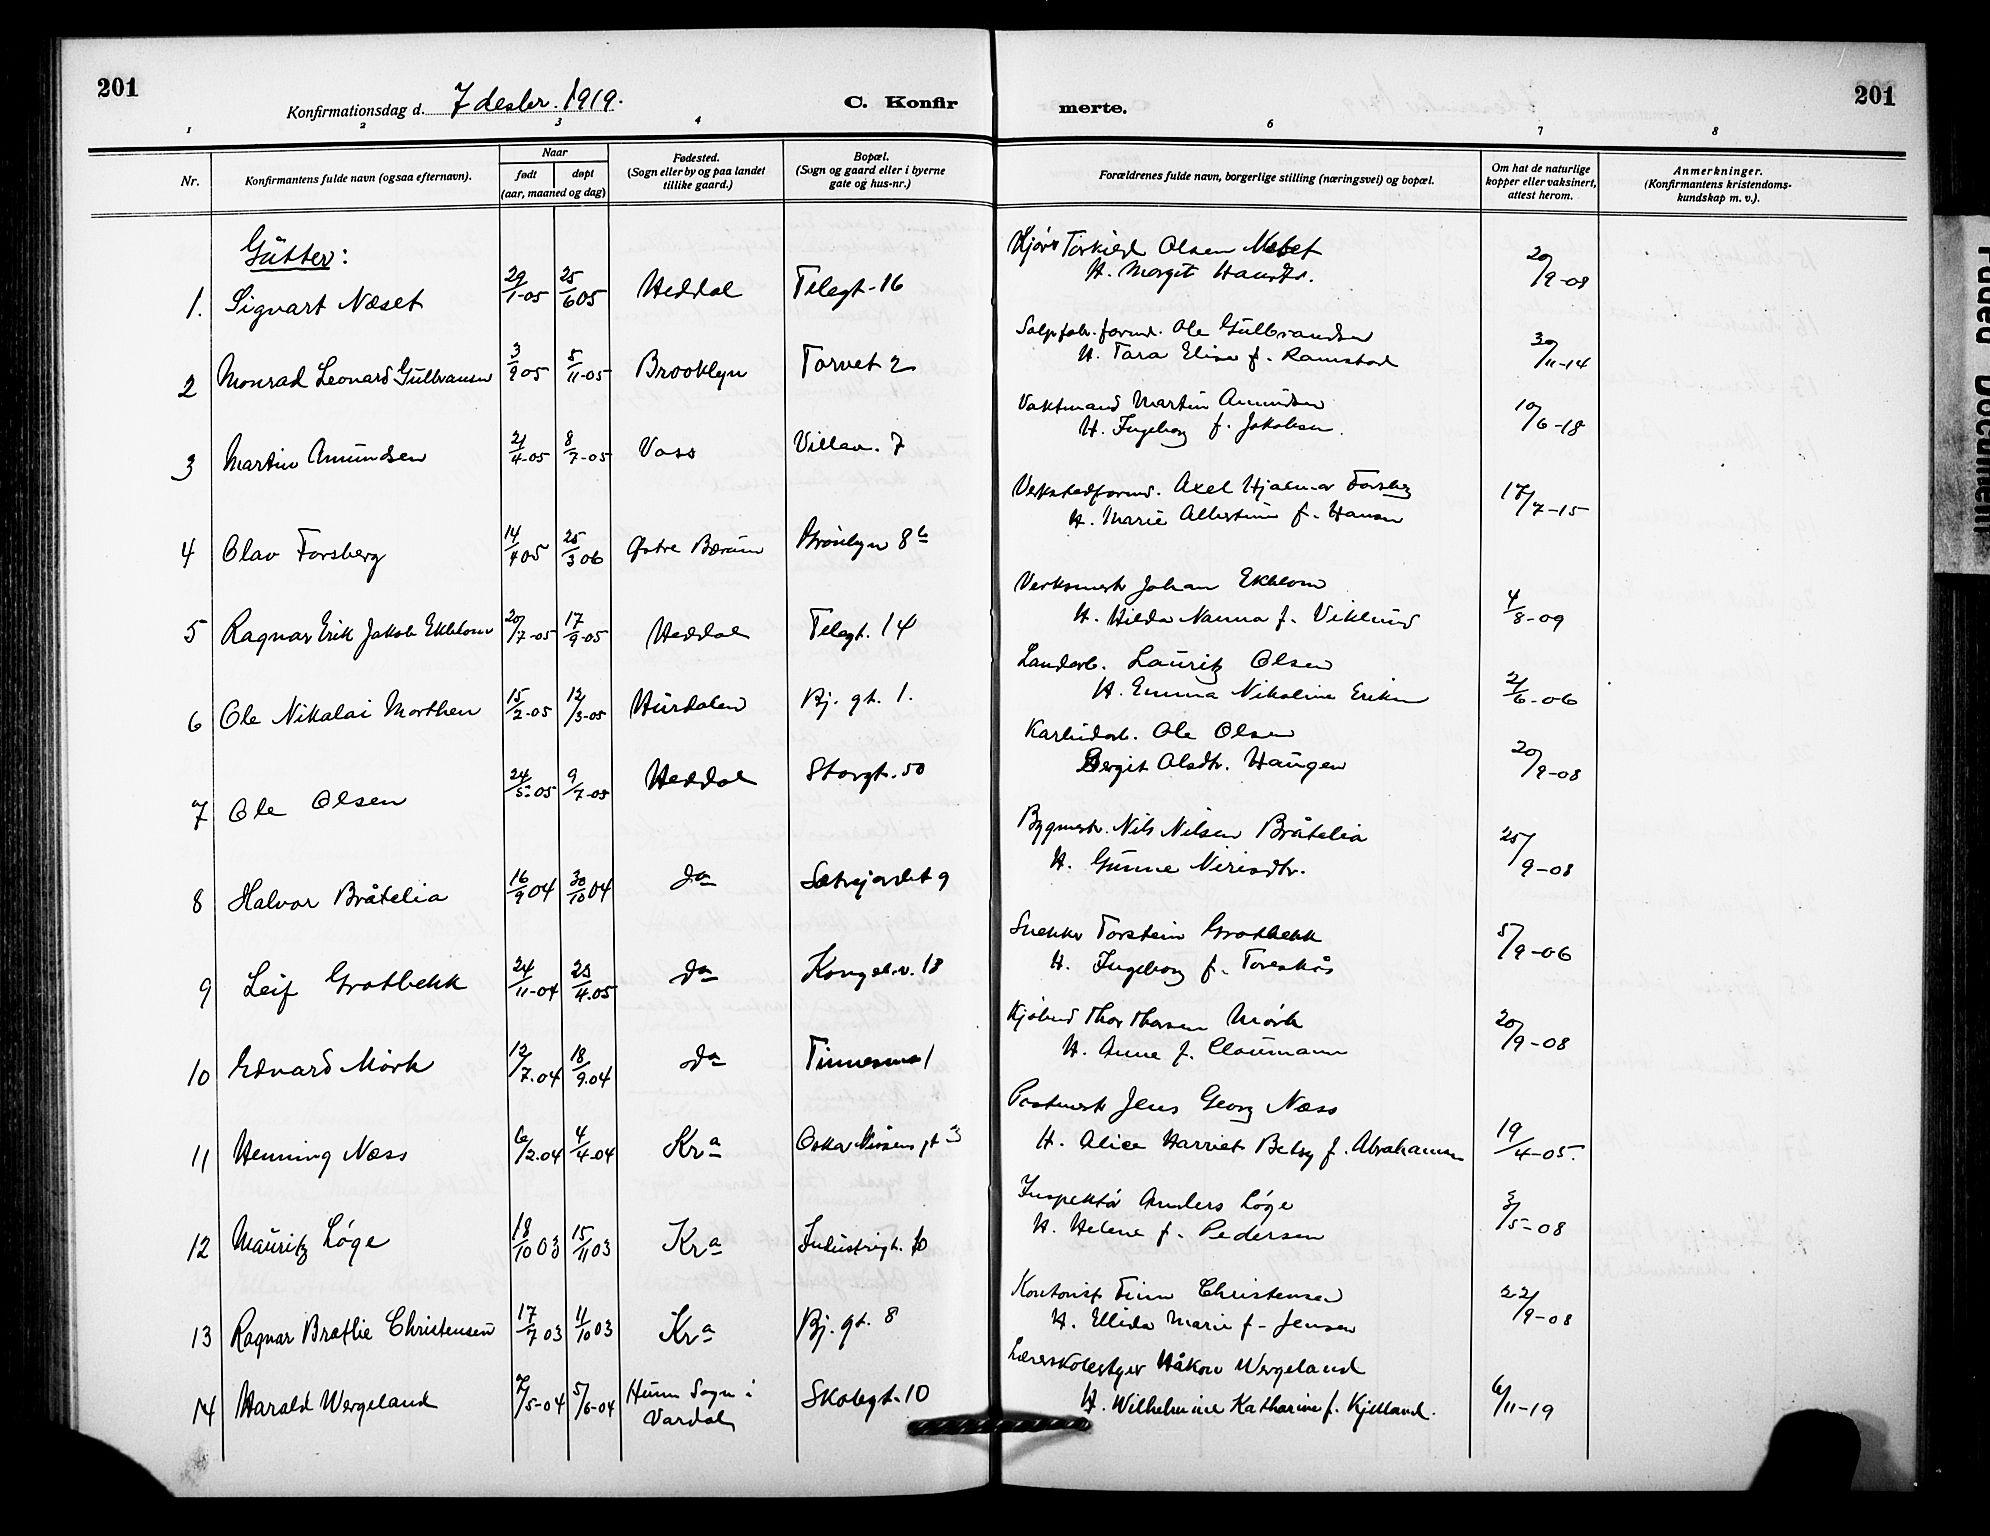 201
Konfirmationsdag d. 7 desbr. 1919.
C. Konfir
merte.
201
1
2
3
4
6
7
8
Nr.
Konfirmantens fulde navn (ogsaa efternavn).
Naar
født
døpt
(aar, maaned og dag)
Fødested.
(Sogn eller by og paa landet
tillike gaard.)
Bopæl.
(Sogn og gaard eller i byerne
gate og hus-nr.)
Forældrenes fulde navn, borgerlige stilling (næringsvei) og bopæl.
Om hat de naturlige
kopper eller vaksinert,
attest herom.
Anmerkninger.
(Konfirmantens kristendoms-
kundskap m. v.).
Gutter:
Torkild Olsen
H. Margit
1. Sigvart Næset 29/1-05 25/6 05 Heddal Telegt. 16 20/9-08
Ole Gulbrandsen
2 Monrad Leonard Gulbransen 3/9 05 5/11-05 Brooklyn Torvet 2 H. Tara Elise f. Ramstad 30/11-14
Vaktmand Martin Amundsen
3 Martin Amundsen 21/4-05 8/7-05 Voss Villav. 7 H. Ingeborg f. Jakobsen. 10/6-18
Verkstedformd. Axel Hjalmar Forsberg
4 Olav Forsberg 14/4 05 25/3 06 Østre Bærum 8b H. Marie Albertine f. Hansen 17/7-15
Verksmestr Johan Ekblom
5 Ragnar Erik Jakob Ekblom 20/7-05 17/9-05 Heddal Telegt. 14 H. Hilda Nanna f. Viklund 4/8-09
Landarb. Lauritz Olsen
6 Ole Nikolai Morthen 15/2-05 12/3-05 Hurdalen Bj. gt. 1. H. Emma Nikoline Eriksen 2/6-06
Karbidarb. Ole Olsen
7 Ole Olsen 24/5-05 9/7-05 Heddal Storgt. 50 Bergit Olsdtr. Haugen 20/9-08
Bygmestr. Nils Nilsen Bråtelia
8 Halvor Bråtelia 16/9 04 30/10 04 da Sætrejordet 9 H. Gunne 25/9-08
Snekker Torstein Grotbekk
9 Leif Grotbekk 24/11-04 23/4.05 da Kongsb.v. 18 H. Ingeborg f. 5/9-06
Kjøbmd Thor Thorsen Mørk
10 Edvard Mørk 12/7.04 18/9.04 da H. Anne f. Claumann 20/9-08
Postmestr Jens Georg Næss
11 Henning Næss 6/2.04 4/4-04 Kra gt 3 H. Alice Harriet Betsy f. Abrahamsen 19/4-05.
Inspektør Anders Løge
12 Mauritz Løge 18/10 03 15/11 03 Kra Industrigt. 10 H. Helene f. Pedersen 3/5-08
Kontorist Finn Christensen
13 Ragnar Bratlie Christensen 17/7 03 11/10 03 Kra Bj. gt. 8 H. Ellida Marie f. Jensen 22/9-08
Læreskolestyrer Håkon Wergeland
14 Harald Wergeland 7/5-04 5/6-04 Hunn Sogn i Skolegt. 10 H. Wilhelmine Katharine f. Kjelland. 6/11-19
Vardal
Faded Document